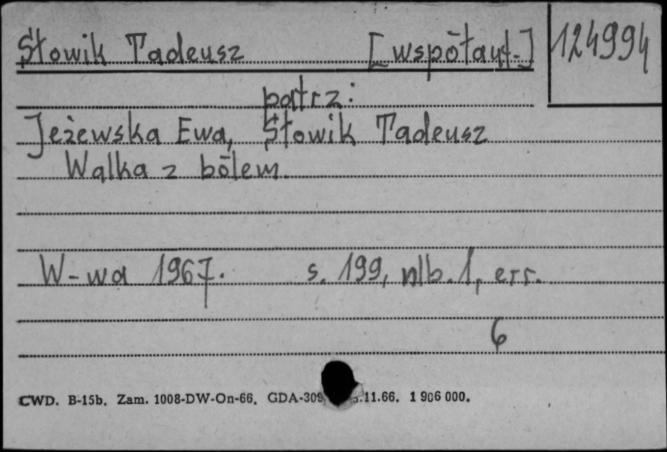 Słowik Tadeusz [współaut.] 124994
patrz:
Jeżewska Ewa, Słowik Tadeusz
Walka z bólem.
W-wa 1967. s. 199, nlb. 1, err.
6
CWD. B-15b. Zam. 1008-DW-On-66. GDA-309 .11.66. 1 906 000.